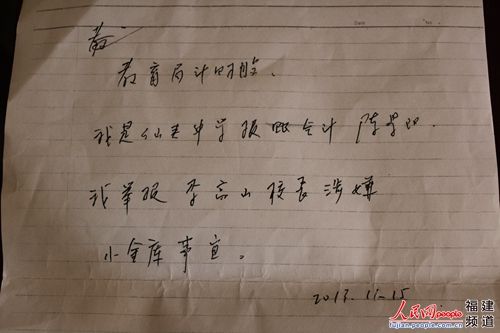 Date No.
教育局计财股。
我是仙 中学报账会计 陈
我举报 李 山 校长涉嫌
小金库事宜。
2013.11-15
人民网 people 福建
fujian.people.com.cn 频道